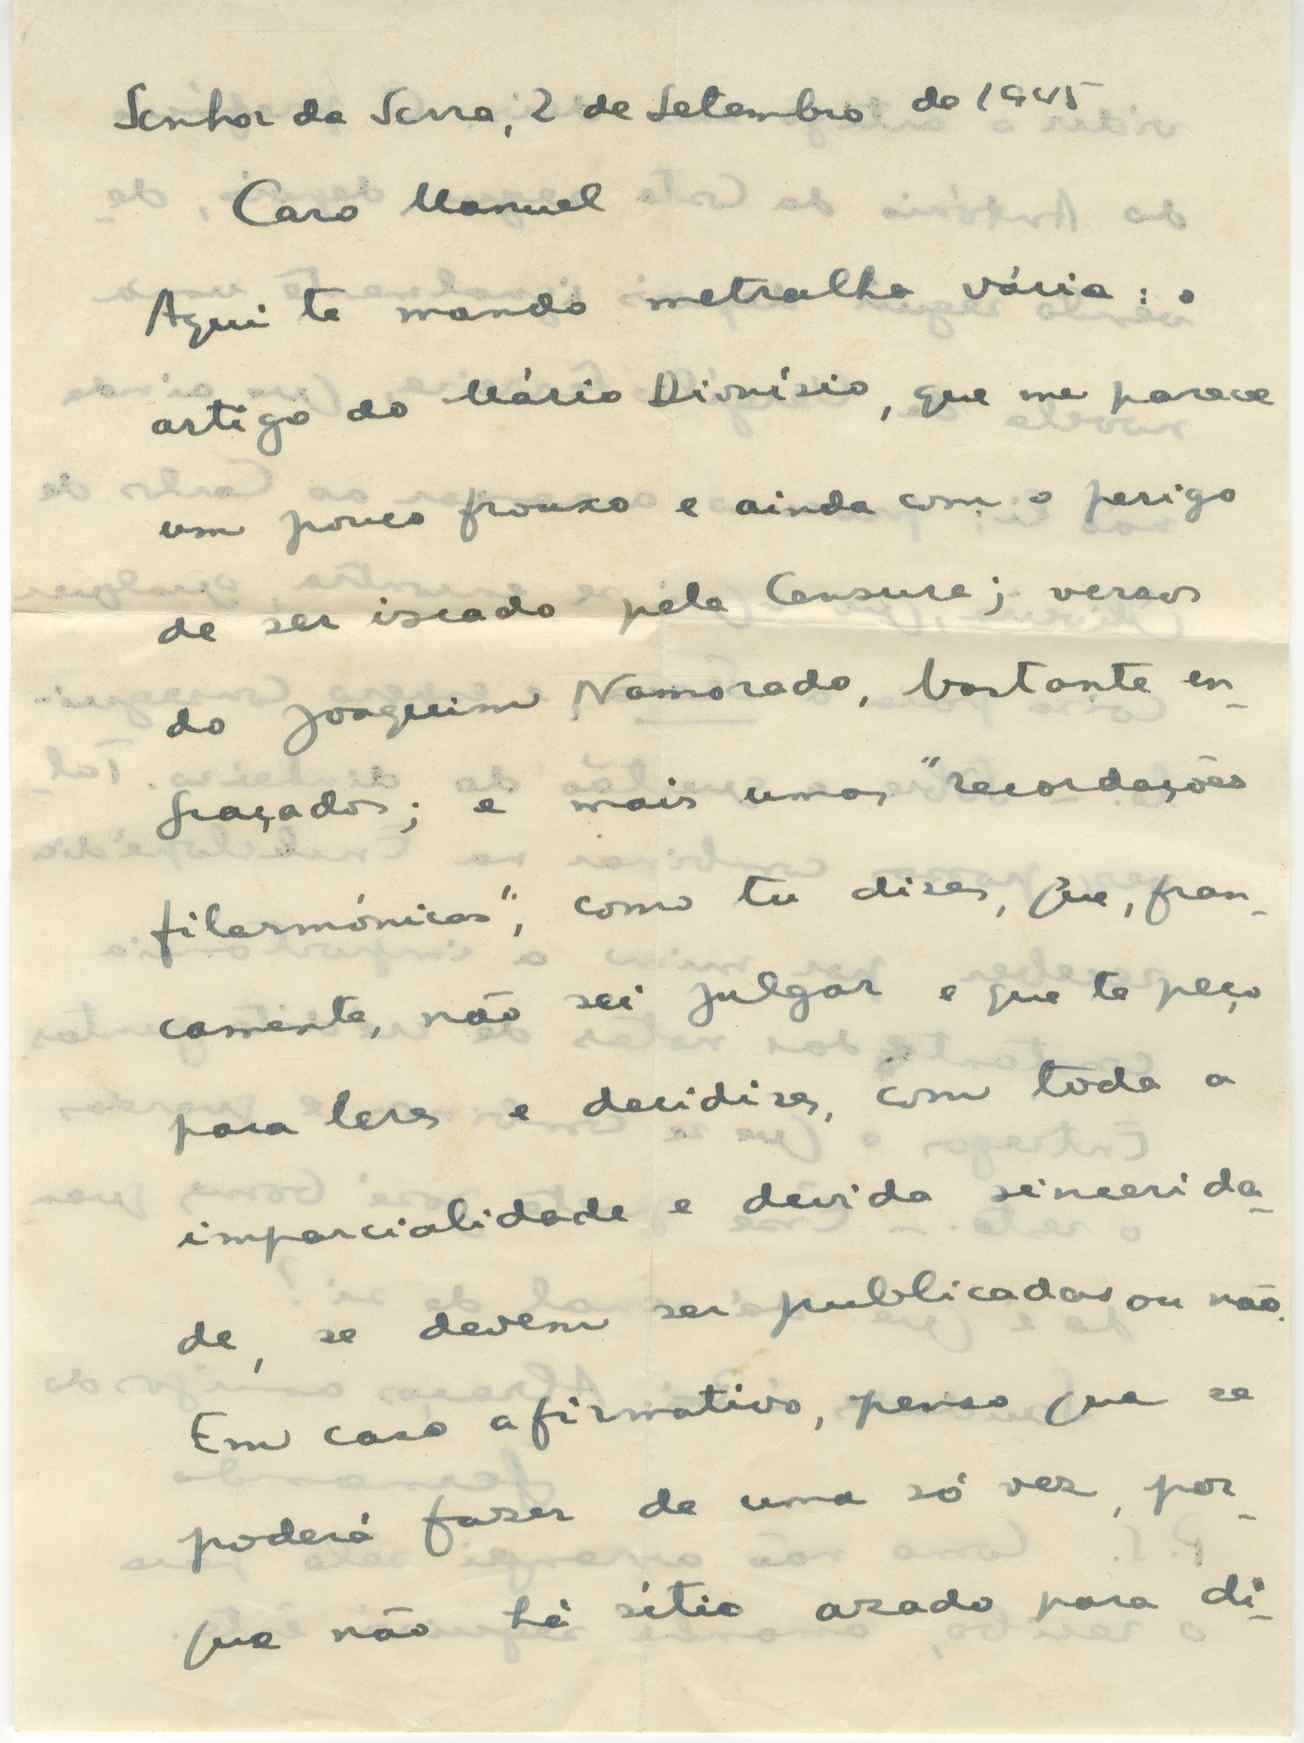 Senhor da Serra, 2 de Setembro de 1945
Caro Manuel
Aqui te mando metralha vária: o
artigo do Mário Dionísio, que me parece
um pouco frouxo e ainda com o perigo
de ser iscado pela Censura; versos
do Joaquim Namorado, bastante en-
graçados; e mais umas "recordações
filarmónicas", como tu dizes, que, fran-
camente, não sei julgar e que te peço
para leres e decidires, com toda a
imparcialidade e devida sincerida-
de, se devem ser publicadas ou não.
Em caso afirmativo, penso que se
poderá fazer de uma só vez, por-
que não há sítio azado para di-